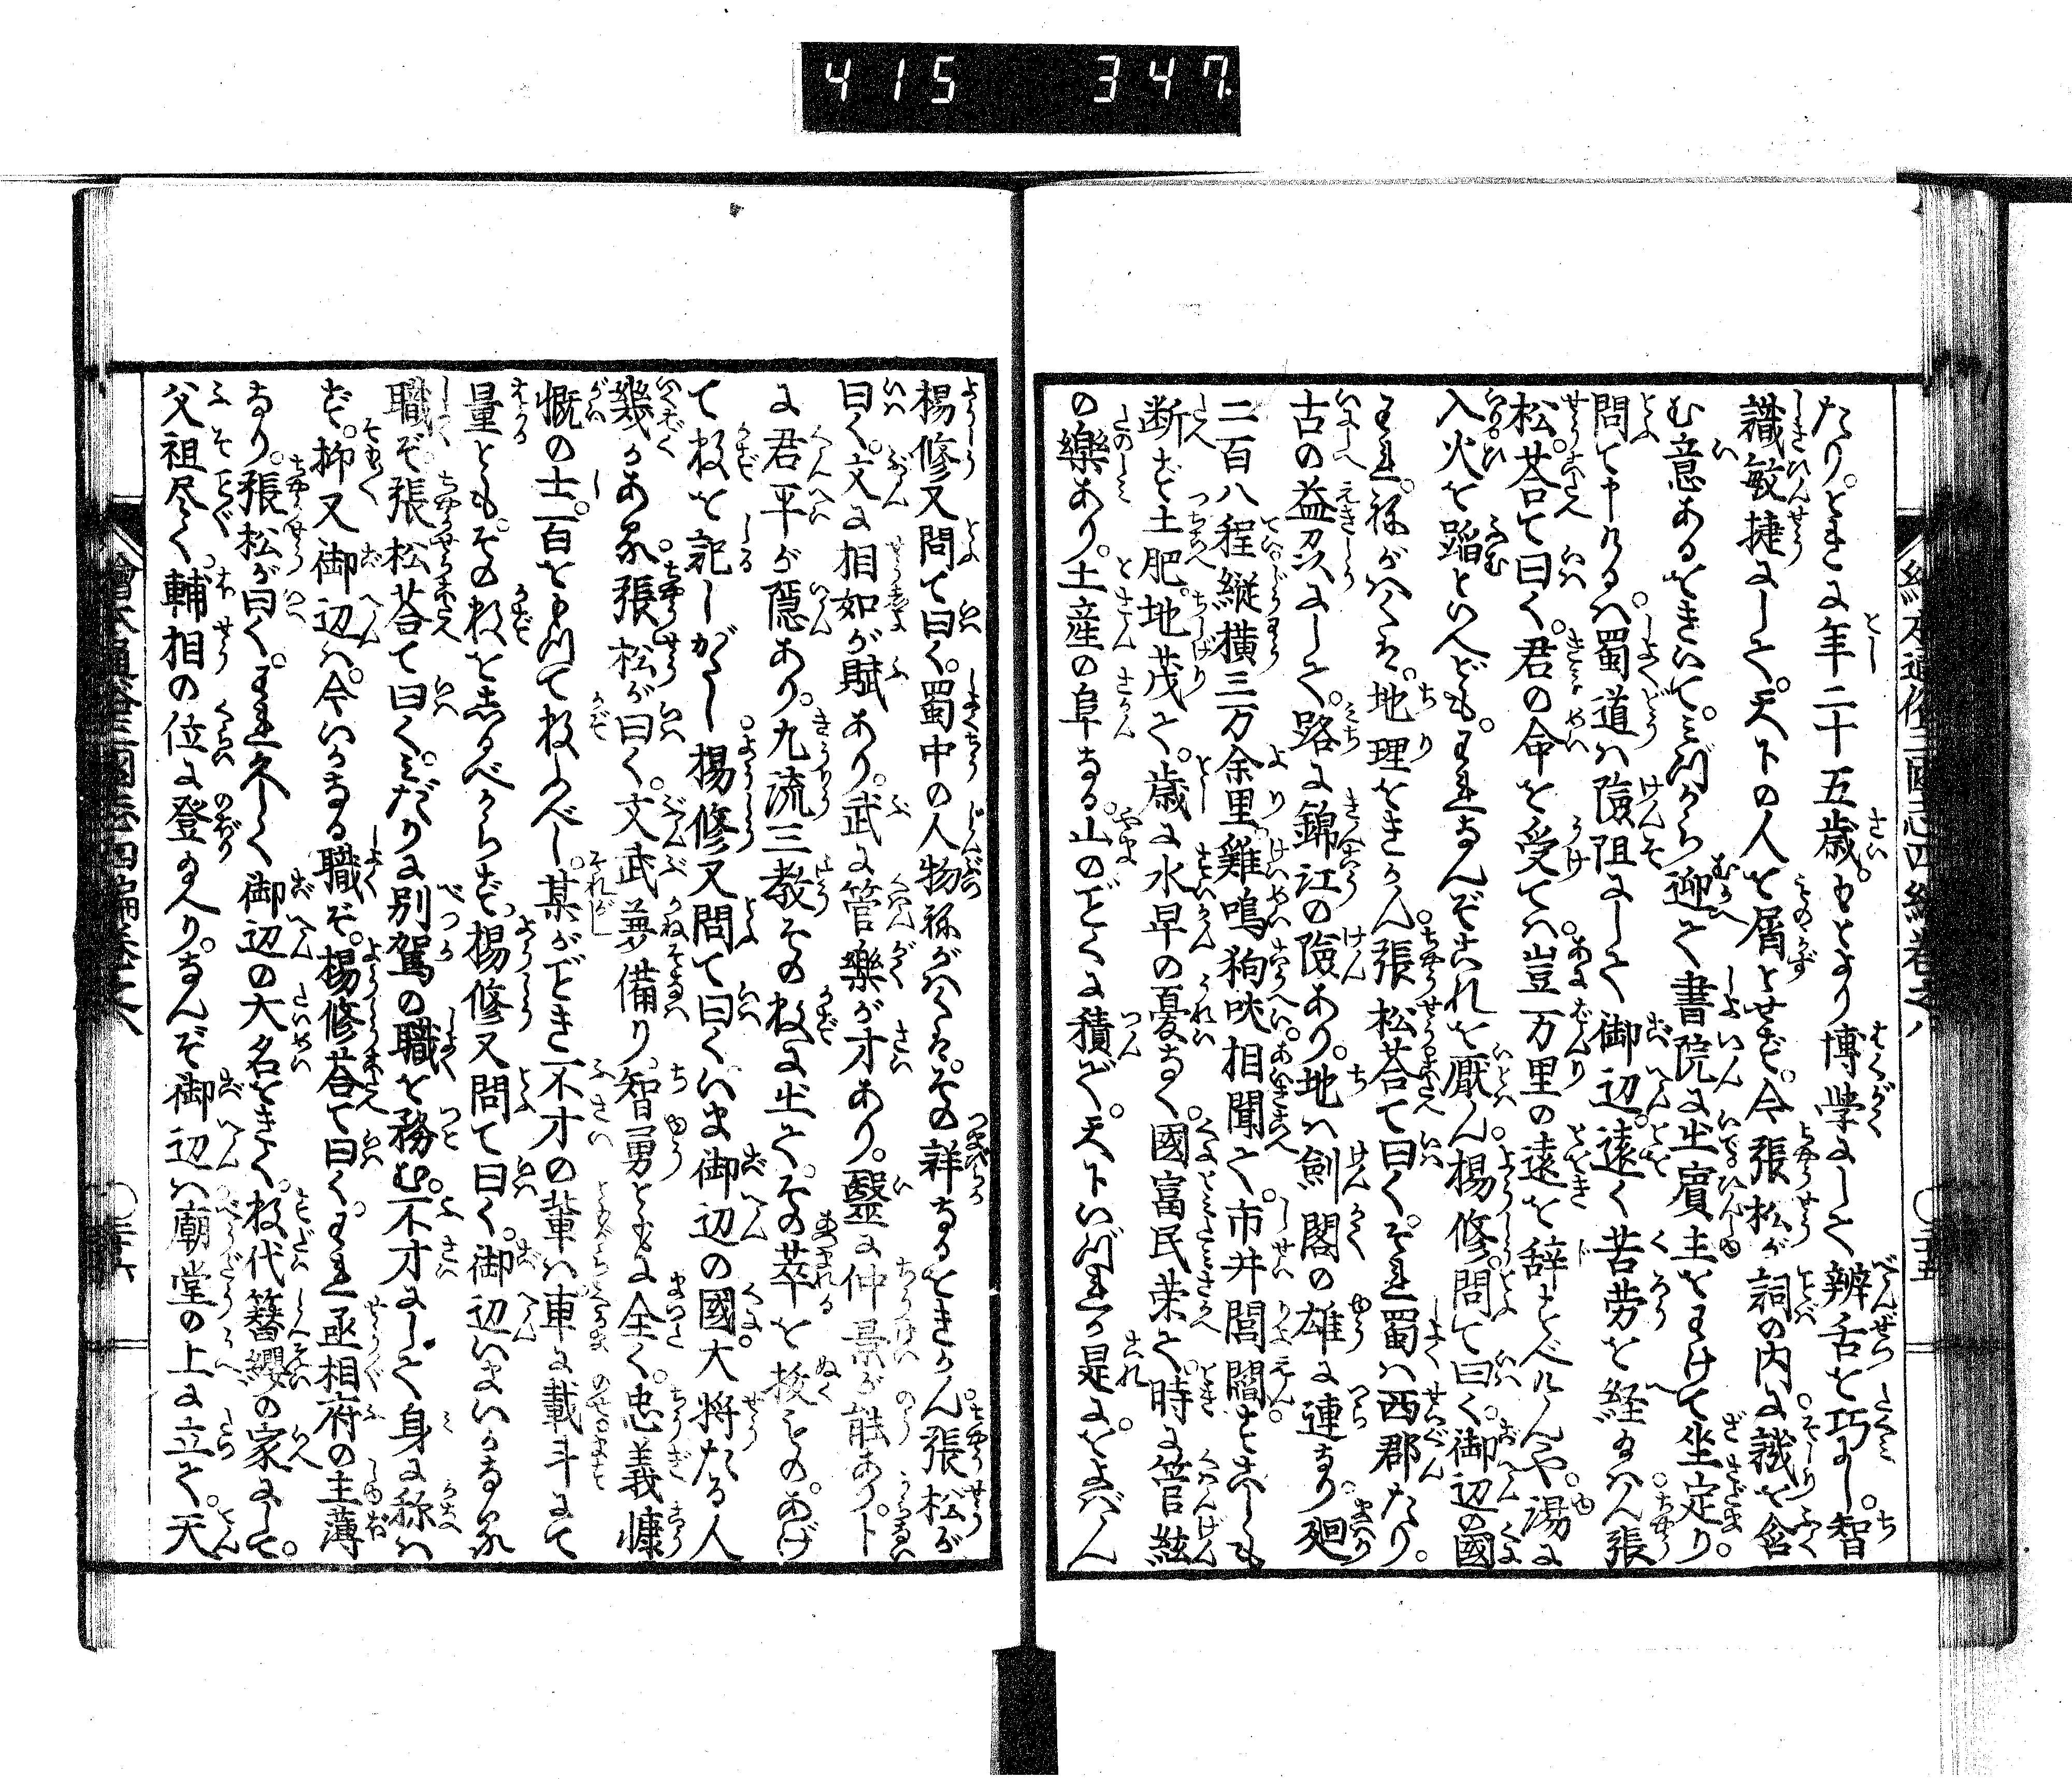 415 347
たり。ときに年二十五歳。もとより博学にして辨舌を巧にし。智
識敏捷にして。天下の人を屑とせず。今張松が詞の内に譏を含
む意あるをきいて。みづから迎て書院に出賓主をわけて坐定り。
問て申けるハ。蜀道ハ險阻にして御辺。遠く苦労を経給ハん張
松。荅て曰く。君の命を受てハ。豈万里の遠を辞すべけんや。湯に
入火を蹈といへども。われなんぞこれを厭ん。楊修。問て曰く。御辺の國
われ。ねがハくは。地理をきかん。張松荅て曰く。それ蜀ハ西郡たり。
古の益刕にして。路に錦江の險あり。地ハ劍閣の雄に連なり。廻
二百八程縦横三万余里。雞鳴狗吠相聞て。市井閭閻たえしも
断ず土肥。地茂て。歳に水旱の憂なく。國富民栄て。時に管絃
の樂あり。土産の阜なる。山のごとくに積ぐ。天下いづれか是に。およばん
楊修又問て曰く。蜀中の人物ねがハくは。その祥なるをきかん。張松が
曰く。文に相如が賦あり。武に管樂が才あり。醫に仲景が能あり。卜
に君平が隱あり。九流三教その数に出て。その萃を抜もの。あげ
て数を記しがたし。楊修又問て曰くいま御辺の國。大将たる人
幾かある。張松が曰く。文武兼備り。智勇ともに全く。忠義慷
慨の士。百をもつて数ふべし。某がごとき不才の輩ハ車に載斗にて
量とも。その数をしるべからず。楊修又問て曰く。御辺いまいかなる
職ぞ。張松荅て曰く。みだりに別駕の職を務む。不才にして身に称ハ
ず。抑又御辺ハ。今いかなる職ぞ。楊修荅て曰く。われ丞相府の主薄
なり。張松が曰く。われ久しく御辺の大名をきく。数代簪纓の家にして。
父祖尽く。輔相の位に登給へり。なんぞ御辺ハ廟堂の上に立て。天